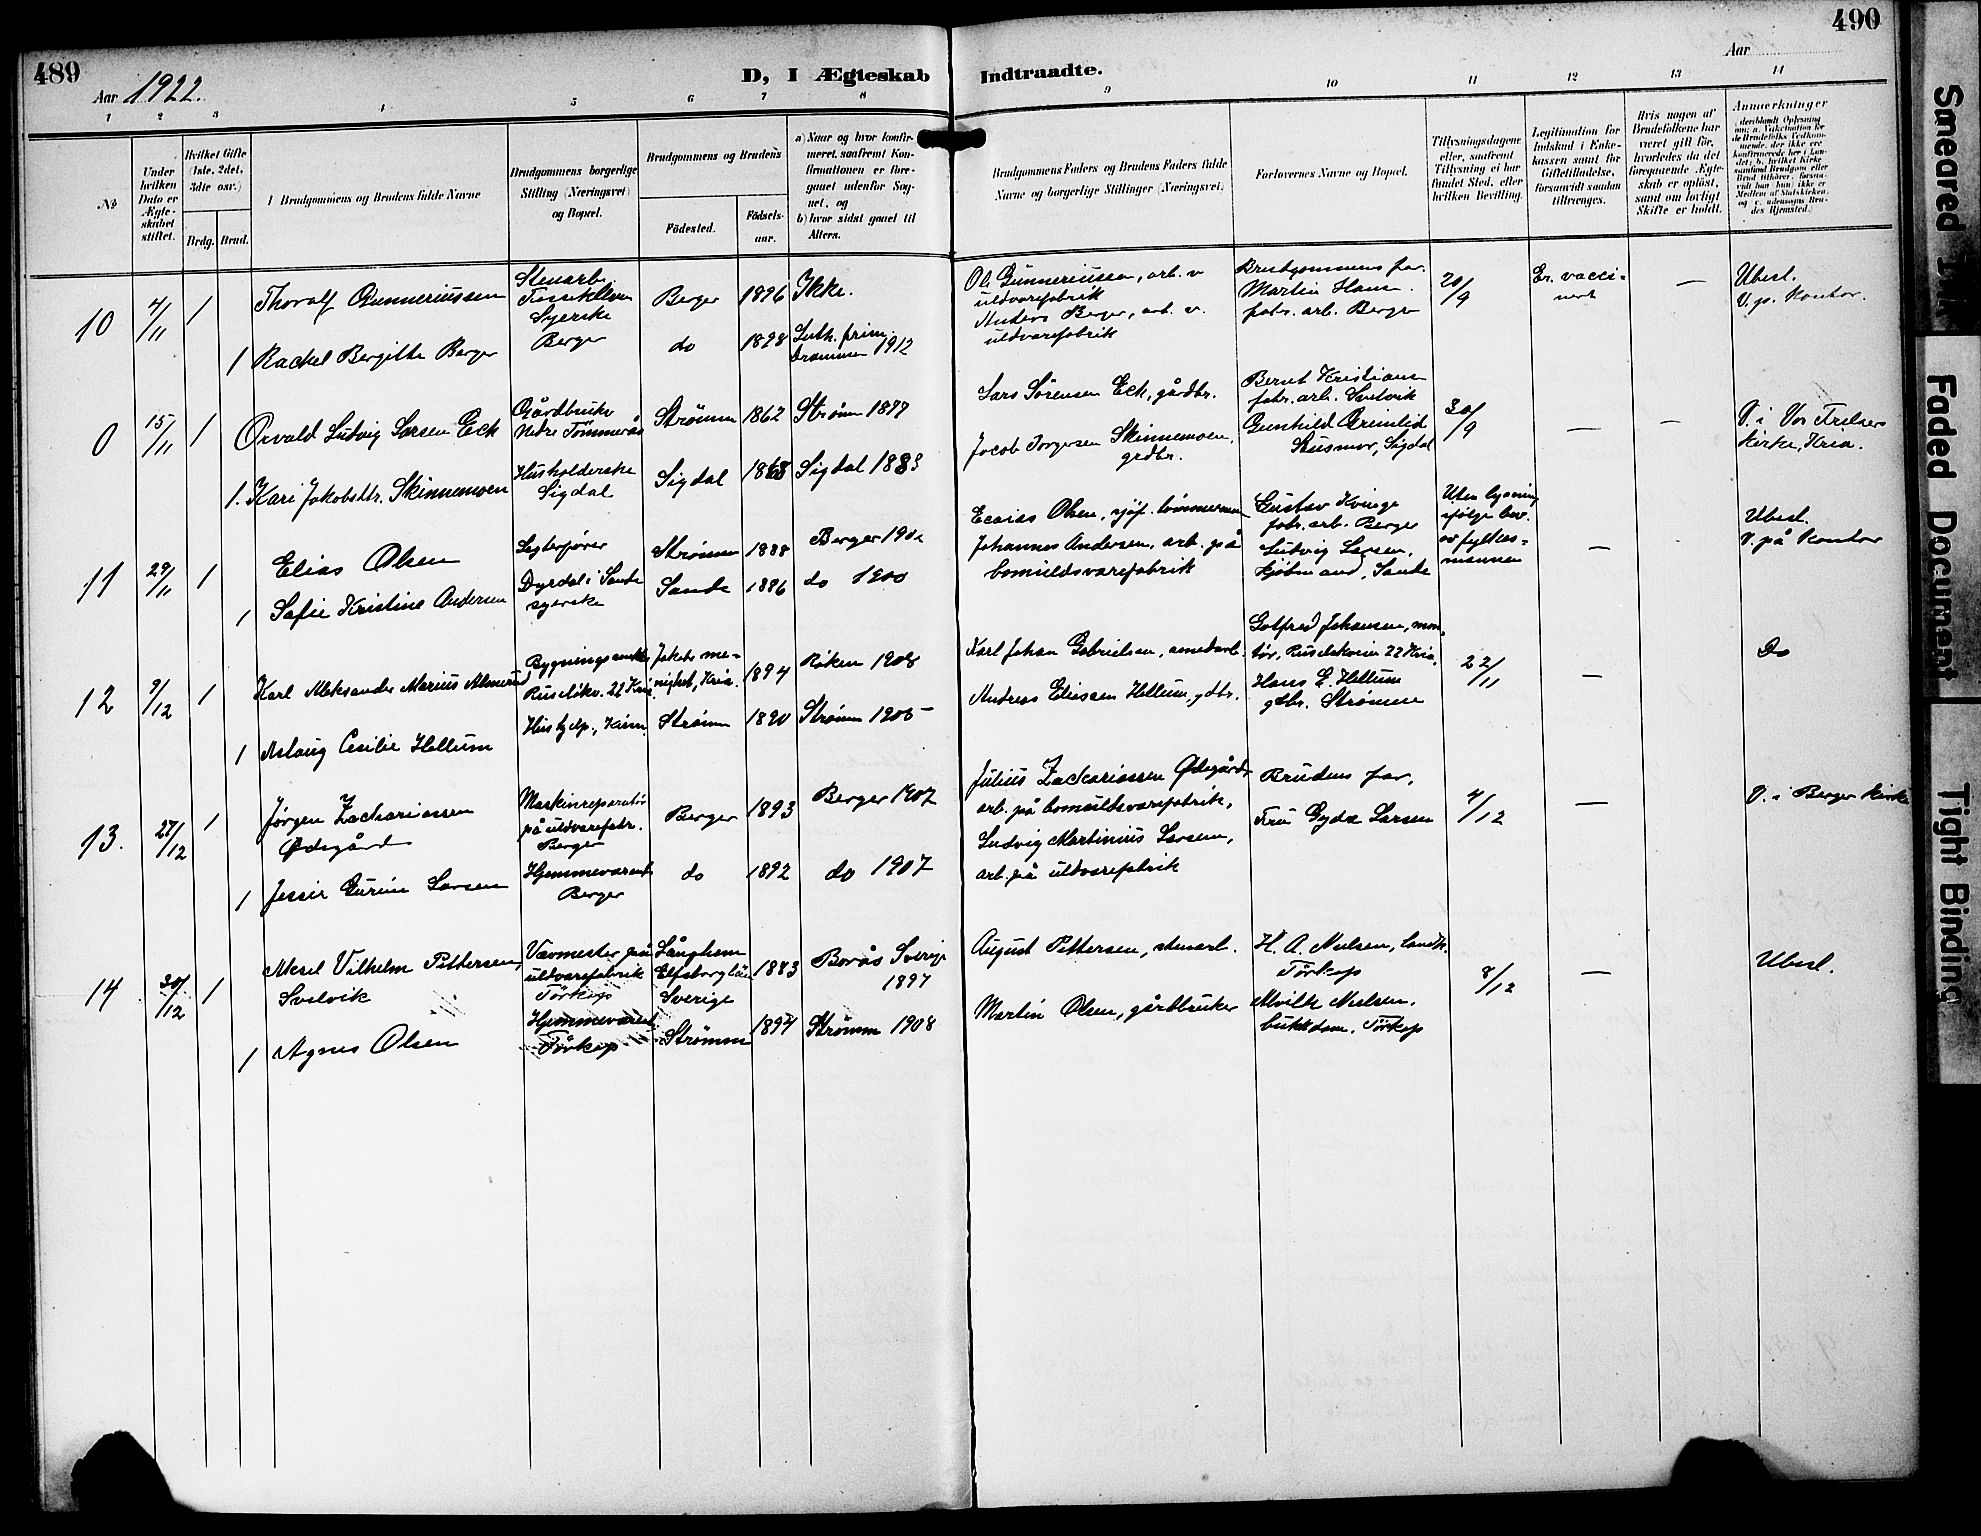 489
490
Aar 1922.
D, I Ægteskab Indtraadte.
Aar
1 2 3 4 5 6 7 8 9 10 11 12 13 14
No
Under hvilken Dato er Ægteskabet stiftet.
Hvilket Gifte (1ste, 2det, 3die osv.)
Brdg. Brud.
Brudgommens og Brudens fulde Navne
Brudgommens borgerlige Stilling (Næringsvei) og Bopæl.
Brudgommens og Brudens
Födested.
Födselsaar.
a) Naar og hvor konfirmeret, saafremt Konfirmationen er foregaaet udenfor Sognet, og
b) hvor sidst gaaet til Alters.
Brudgommens Faders og Brudens Faders fulde Navne og borgerlige Stillinger (Næringsvei)
Forlovernes Navne og Bopæl.
Tillysningsdagene eller, saafremt Tillysning ei har fundet Sted, efter hvilken Bevilling.
Legitimation for Indskud i Enkekassen samt for Giftetilladelse, forsaavidt saadan tiltrænges.
Hvis nogen af Brudefolkene har været gift för, hvorledes da det foregaaende Ægteskab er oplöst, samt om lovligt Skifte er holdt.
Anmærkninger
10 4/11 1 Thoralf Gunneriussen
Berger 1896 Ikke.
Syerske
Berger
1 Rachel Bergitte Berger
do 1898 Luth. frim. Drammen 1912
Ole Gunneriussen, arb. v
uldvarefabrik
Anders Berger, arb. v.
uldvarefabrik
Brudgommens far.
Martin Hans.
fabr. arb. Berger
20/9
Er vaccinert
—
Ubesl.
V. p. kontor.
0 15/11 1 Orvald Ludvig Larsen Eck
Gårdbruker
Nedre Tömmerås
Strømm 1862 Strømm 1877
1. Kari Jakobsdtr. Skinnemoen
Husholderske
Sigdal
Sigdal 1868 Sigdal 1883
Lars Sörensen Eck, gårdbr.
Jacob Torgersen Skinnemoen,
grdbr.
Bernt Kristians
fabr. arb. Svelvik
Gunhild Grimlid
Husmor, Sigdal
30/9
— —
V. i Vor Frelsers
kirke, Kria.
11 29/11 1 Elias Olsen
Legterfører
Strømm 1888 Berger
1 Sofie Kristine Andersen
Dyrdal i Sande
syerske
Sande 1886 do 1900
Esaias Olsen, sjøf. tömmermann
Johannes Andersen, arb. på
bomuldsvarefabrik
Gustav Kvinge
fabr. arb. Berger
Ludvig Larsen,
kjøbmand, Sande
Uten lysning
ifølge bev.
av fylkesmannen
—
Ubesl.
V. på kontor
12 9/12 1 Karl Aleksander Marius Almerud
Ruselökv. 22 Kria.
Jakobs menighet, Kria. 1894 Röken 1908
1 Aslaug Cecilie Hellum
Hushjelp, Kria
Strømm 1890 Strømm 1905
Karl Johan Gabrielsen, smedarb.
Andreas Eliesen Hellum, gdbr.
Gotfred Johansen, montör, Ruselökveien 22 Kria,
Hans E. Hellum
gdbr. Strømm
22/11
—
Do
13. 27/12 1 Jørgen Zachariassen
Ødegård
Maskinreparatör
på uldvarefabr.
Berger
Berger 1893 Berger 1907
1 Jessie Gurine Larsen
Hjemmeværende
Berger
do 1892 do 1907
Julius Zachariassen Ødegård,
arb. på bomuldsvarefabrik,
Ludvig Martinius Larsen,
arb. på uldvarefabrik
Brudens far,
Fru Gyda Larsen
4/12
—
V. i Berger kirke
14 30/12 1 Aksel Vilhelm Pettersen,
Svelvik
Vævmester på
uldvarefabrik
Törkop
Långhem
Elfsborglän
Sverige
1883 Borås Sverige
1897
1 Agnes Olsen
Hjemmeværende
Törkop
Strømm 1894 Strømm 1908
August Pettersen, stenarb.
Martin Olsen, gårdbruker
H. A. Nielsen, landh.
Törkop
Nielsen.
butikdam, Törkop
8/12
—
Ubesl.
Smeared Ink
Faded Document
Tight Binding